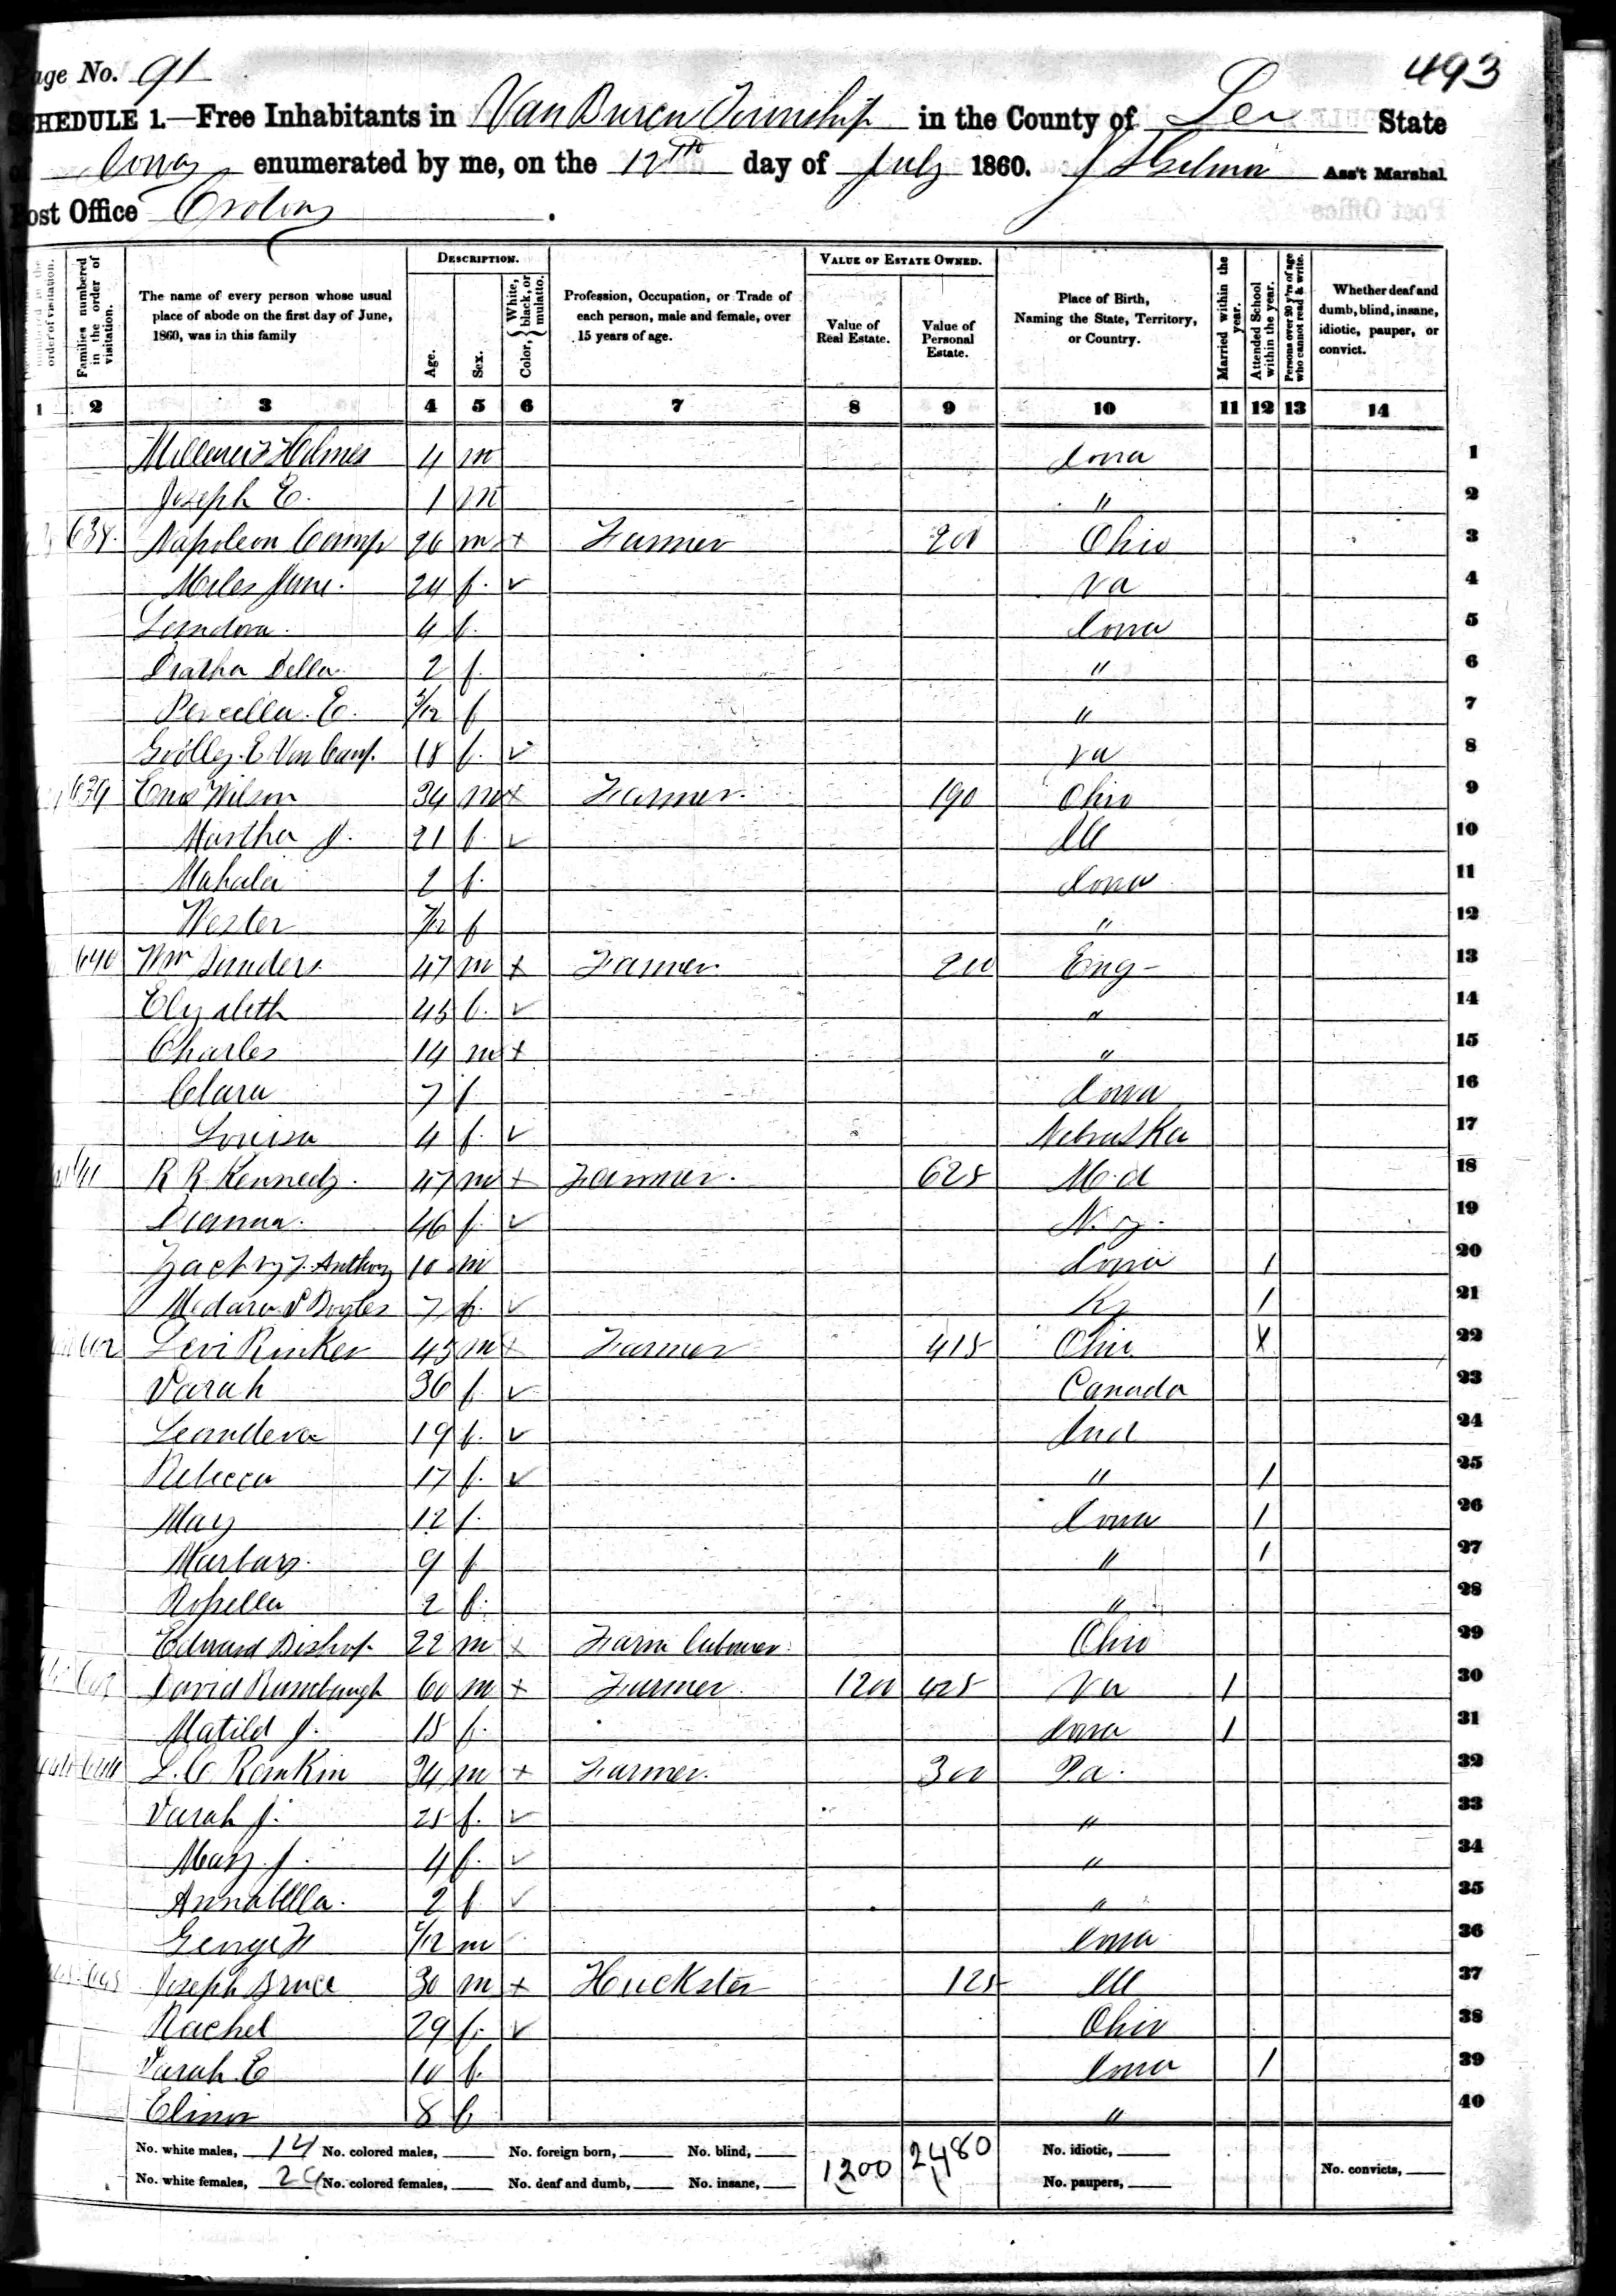 Page No. 91
493
SCHEDULE 1.—Free Inhabitants in Van Buren Township in the County of Lee State
of Iowa enumerated by me, on the 12th day of July 1860. Ass't Marshal
Post Office Croton
Families numbered in the order of visitation.
The name of every person whose usual place of abode on the first day of June, 1860, was in this family
DESCRIPTION.
Age.
Sex.
Color, { White, black, or mulatto.
Profession, Occupation, or Trade of each person, male and female, over 15 years of age.
VALUE OF ESTATE OWNED.
Value of Real Estate.
Value of Personal Estate.
Place of Birth, Naming the State, Territory, or Country.
Married within the year.
Attended School within the year.
Persons over 20 y'rs of age who cannot read & write.
Whether deaf and dumb, blind, insane, idiotic, pauper, or convict.
1 2 3 4 5 6 7 8 9 10 11 12 13 14
Holmes 4 m Iowa 1
Joseph E. 1 m " 2
638. Napoleon Camp 26 m + Farmer 200 Ohio 3
Jane. 24 f. ✓ Va 4
4 f. Iowa 5
Della. 2 f. " 6
E. /12 f " 7
E Van Camp. 18 f. ✓ Va 8
639 Enos Wilson 34 m + Farmer. 190 Ohio 9
Martha J. 21 f. ✓ Ill 10
Mahala 2 f. Iowa 11
Hester 7/12 f " 12
640 Wm Sunders 47 m + Farmer. 200 Eng - 13
Elyzabeth 45 f. ✓ " 14
Charles 14 m + " 15
Clara 7 f Iowa 16
Louisa 4 f. ✓ Nebraska 17
641 R R Kennedy. 47 m + Farmer. 625 M.d 18
Dianna. 46 f. ✓ N.y. 19
Zachry T. Anthony 10 m Iowa / 20
Medara S Boyles 7 f. ✓ Ky / 21
642 Levi Rinker 45 m + Farmer 415 Ohio X 22
Sarah 36 f. ✓ Canada 23
19 f. ✓ Ind 24
Rebecca 17 f. ✓ " / 25
Mary 12 f. Iowa / 26
9 f " / 27
Rosella 2 f. " 28
Edward Bishop. 22 m + Farm Labourer. Ohio 29
643 David Rumbaugh 60 m + Farmer. 1200 425 Va / 30
Matild J. 15 f. Iowa / 31
644 644 L. C. Rankin 34 m + Farmer. 300 Pa. 32
Sarah J. 25 f. ✓ " 33
Mary J. 4 f. ✓ " 34
Annabella. 2 f. ✓ " 35
George /12 m Iowa 36
645 645 Joseph Bruce 30 m + Huckster 125 Ill 37
Rachel 29 f. ✓ Ohio 38
Sarah E 10 f. Iowa / 39
Elinor 8 f " 40
No. white males, 14 No. colored males, No. foreign born, No. blind, 1200 2480 No. idiotic,
No. white females, 26 No. colored females, No. deaf and dumb, No. insane, No. paupers, No. convicts,